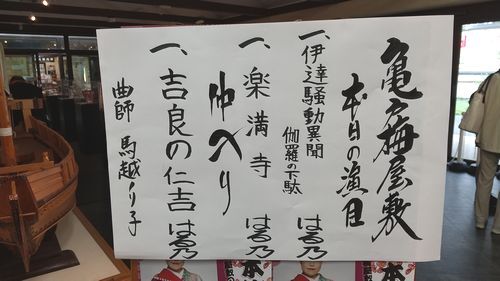 亀戸梅屋敷
本日の演目
一、伊達騒動異聞
伽羅の下駄 はる乃
一、楽満寺 はる乃
仲入り
一、吉良の仁吉 はる乃
曲師 馬越ノリ子